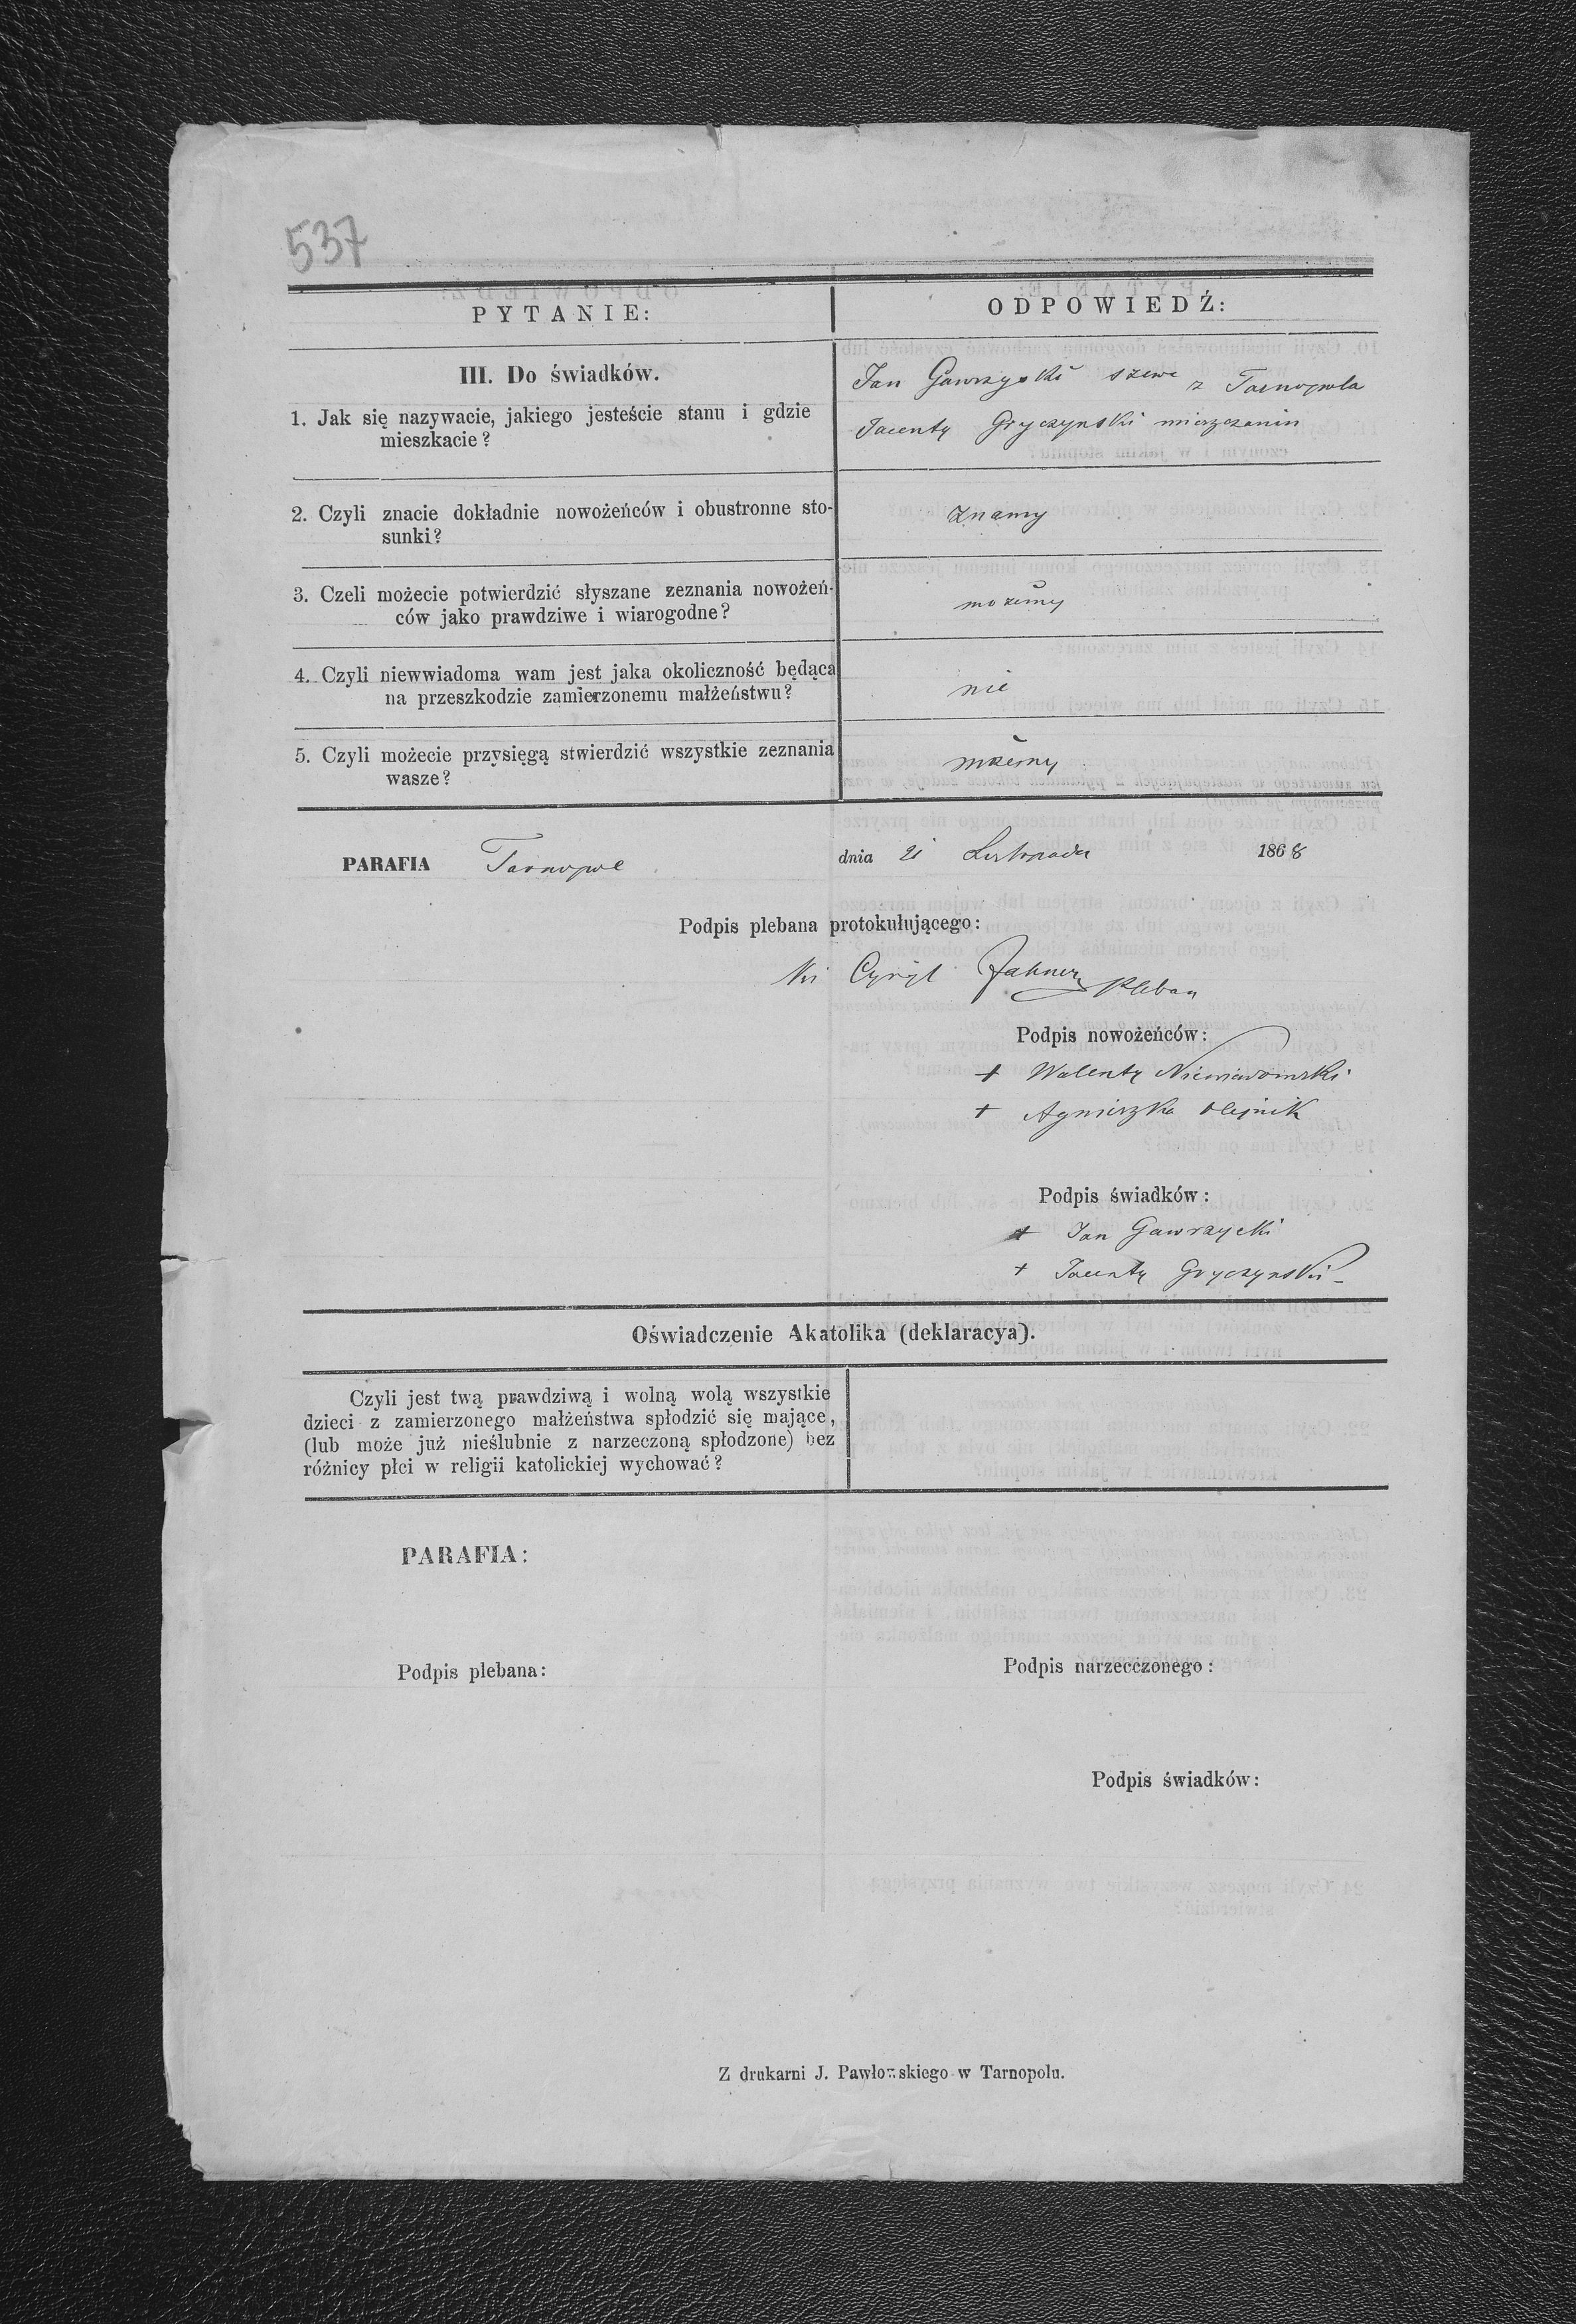 537
PYTANIE:
ODPOWIEDŹ:
III. Do świadków.
1. Jak się nazywacie, jakiego jesteście stanu i gdzie
mieszkacie?
Jan Gawrzycki szewc z Tarnopola
Jacenty Gryczynski mieszczanin
2. Czyli znacie dokładnie nowożeńców i obustronne sto-
sunki?
znamy
3. Czeli możecie potwierdzić słyszane zeznania nowożeń-
ców jako prawdziwe i wiarogodne?
możemy
4. Czyli niewwiadoma wam jest jaka okoliczność będąca
na przeszkodzie zamierzonemu małżeństwu?
nie
5. Czyli możecie przysięgą stwierdzić wszystkie zeznania
wasze?
możemy
PARAFIA Tarnopol dnia 21 Listopada 1868
Podpis plebana protokułującego:
Cyryl pleban
Podpis nowożeńców:
+ Walenty Niewiadomski
+ Agnieszka Olejnik
Podpis świadków:
+ Jan Gawrzycki
+ Jacenty Gryczynski
Oświadczenie Akatolika (deklaracya).
Czyli jest twą prawdziwą i wolną wolą wszystkie
dzieci z zamierzonego małżeństwa spłodzić się mające,
(lub może już nieślubnie z narzeczoną spłodzone) bez
różnicy płci w religii katolickiej wychować?
PARAFIA:
Podpis plebana:
Podpis narzecczonego:
Podpis świadków:
Z drukarni J. Pawłowskiego w Tarnopolu.